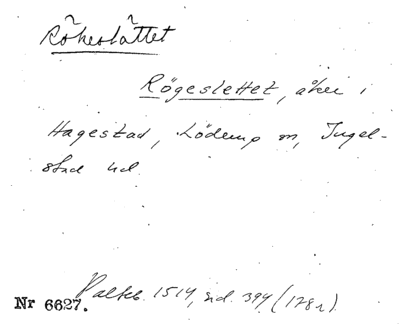 Rökeslättet
Rögeslettet, åker i
Hagestad, Löderup sn, Ingel-
stad hd.
Palteb. 1514, sid. 394 (178r)
Nr 6627.